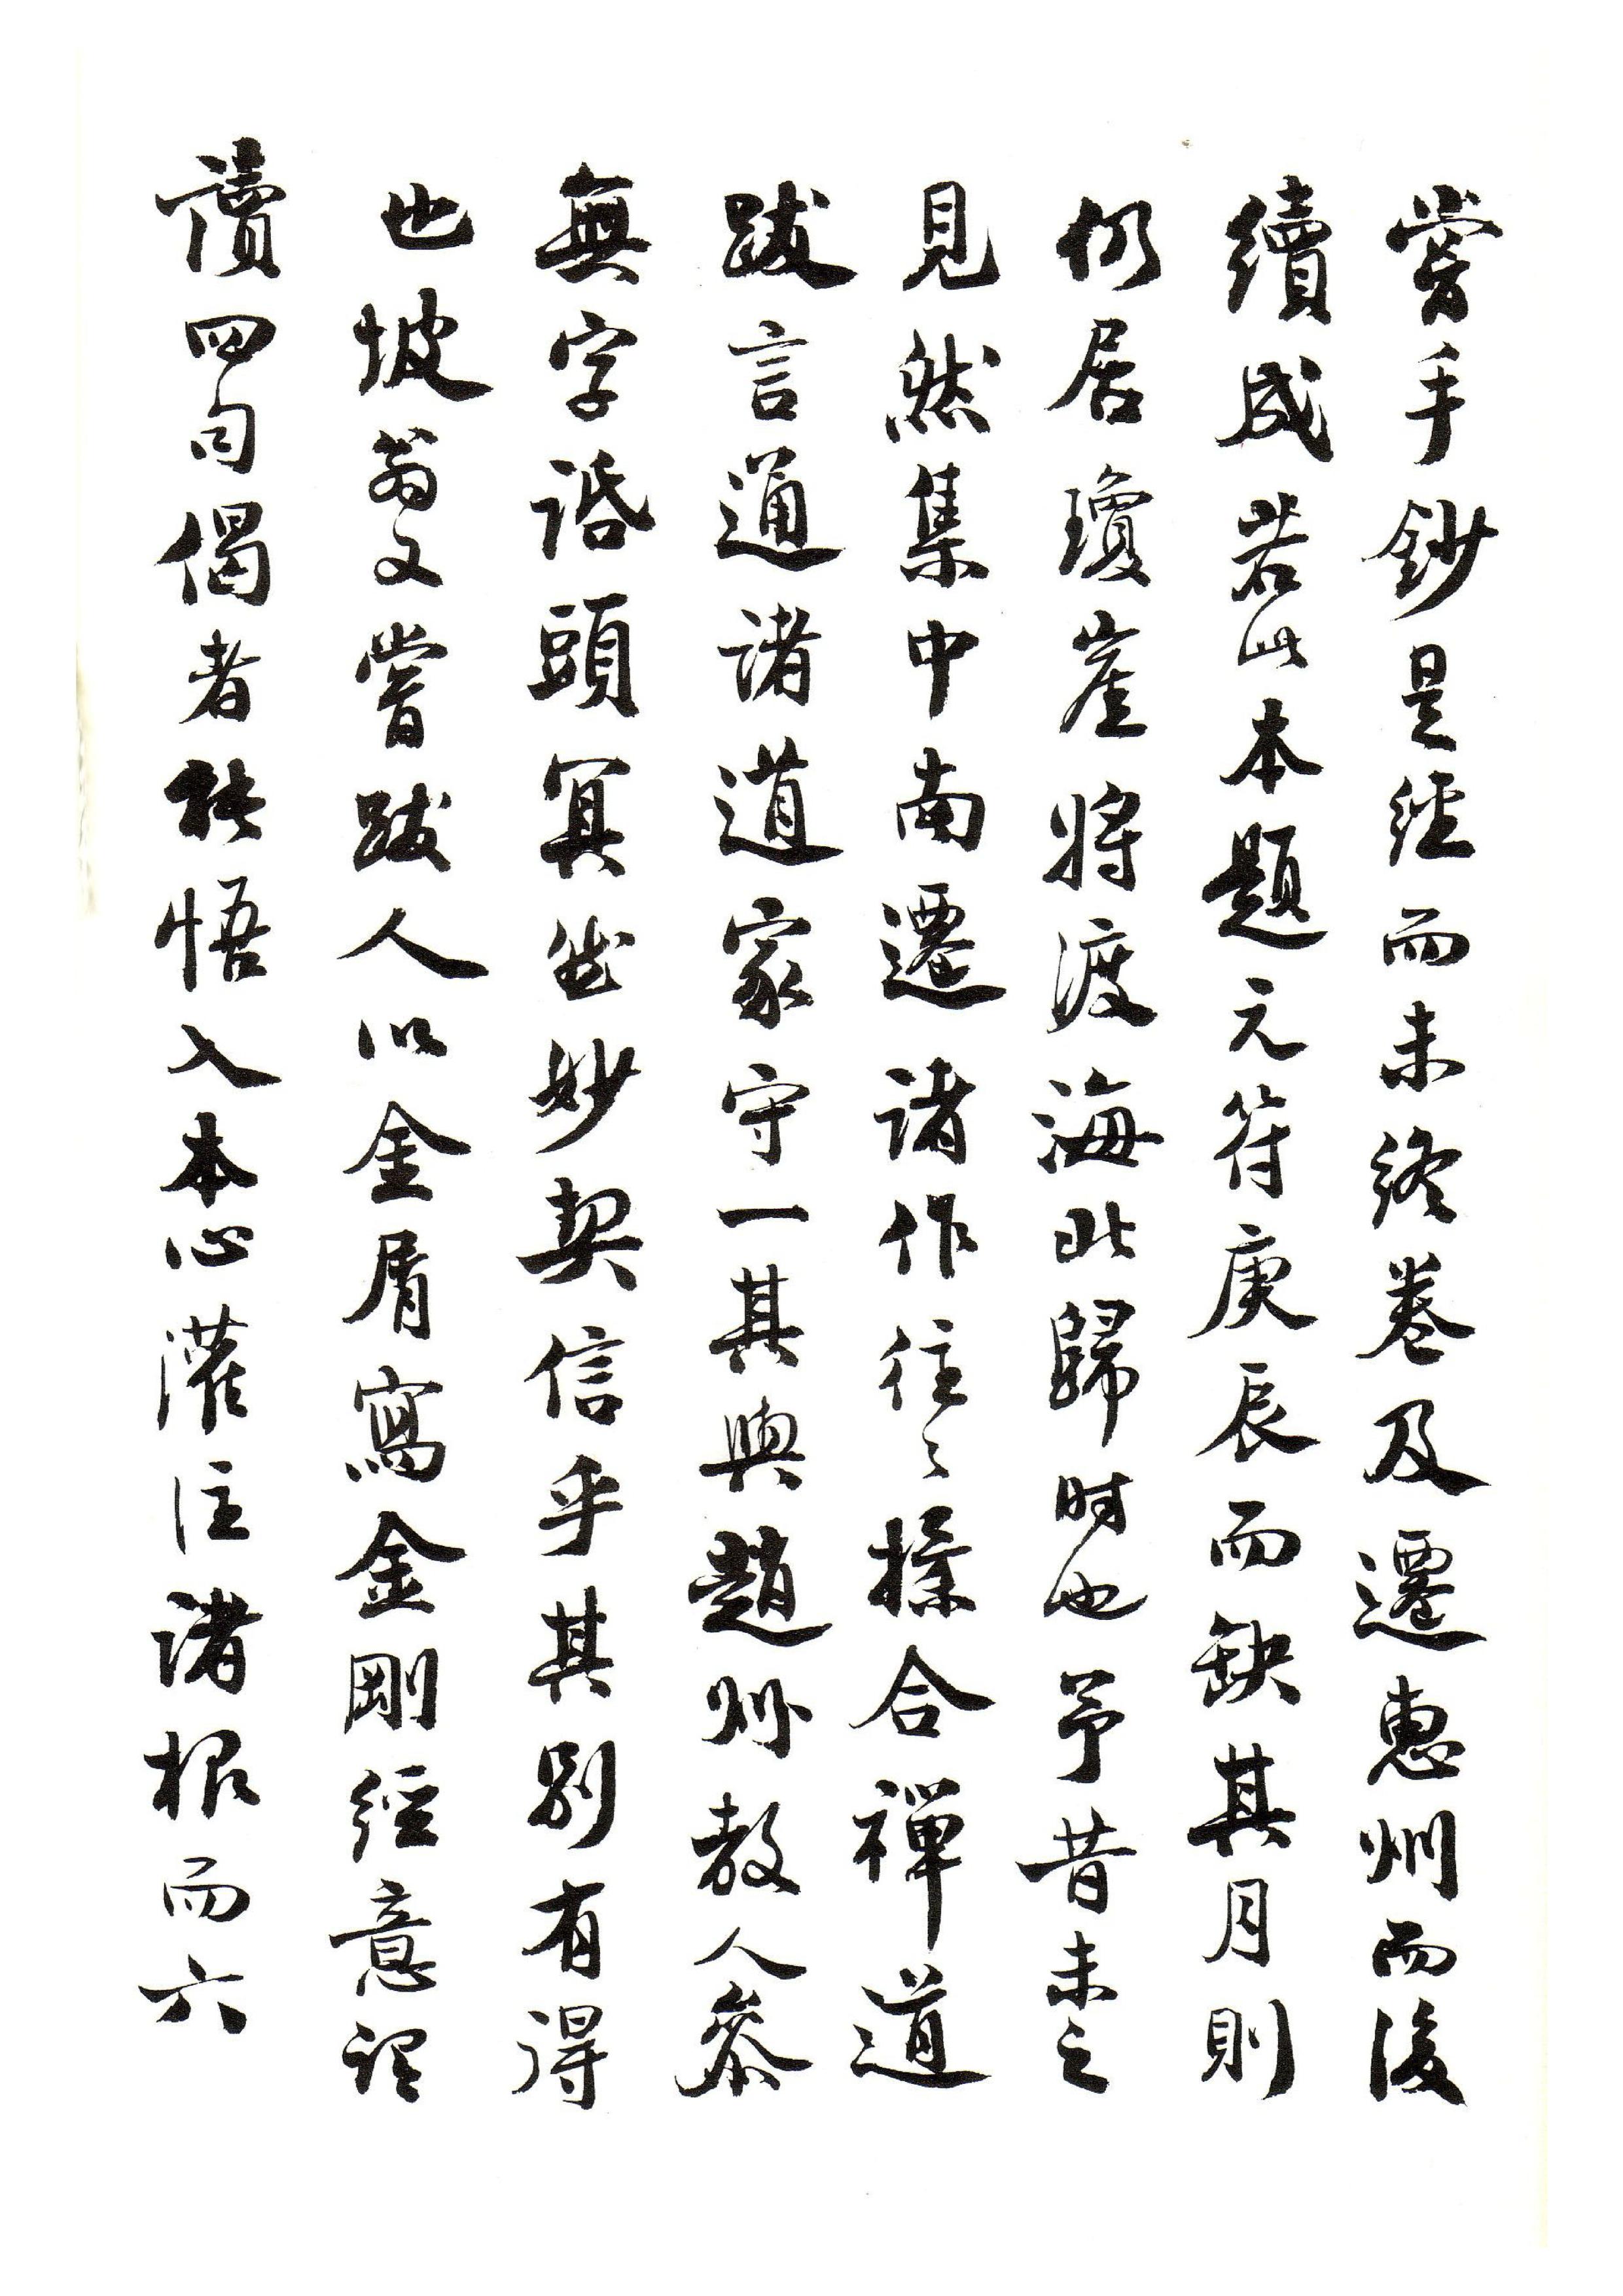 嘗手鈔是經而未終卷及遷惠州而後
續成若此本題元符庚辰而缺其月則
仍居瓊崖將渡海北歸時也予昔未之
見然集中南遷諸作往々攥合禪道
跋言通諸道家守一其與趙州教人參
無字話頭冥然妙契信乎其別有得
也坡翁又嘗跋人以金屑寫金剛經意謂
讀四句偈者能悟入本心灌注諸根而六